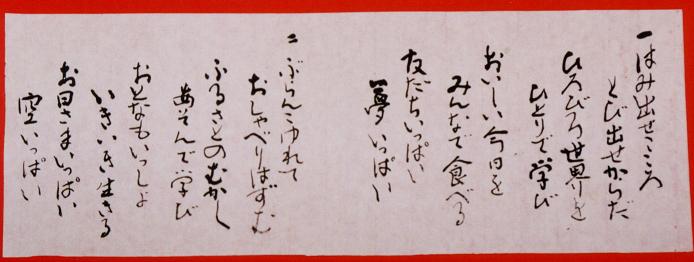 一 はみ出せこころ
とび出せからだ
ひろびろ世界を
ひとりで学び
おいしい今日を
みんなで食べる
友だちいっぱい
夢いっぱい
二 ぶらんこゆれて
おしゃべりはずむ
ふるさとのむかし
あそんで学び
おとなもいっしょ
いきいき生きる
お日さまいっぱい
空いっぱい